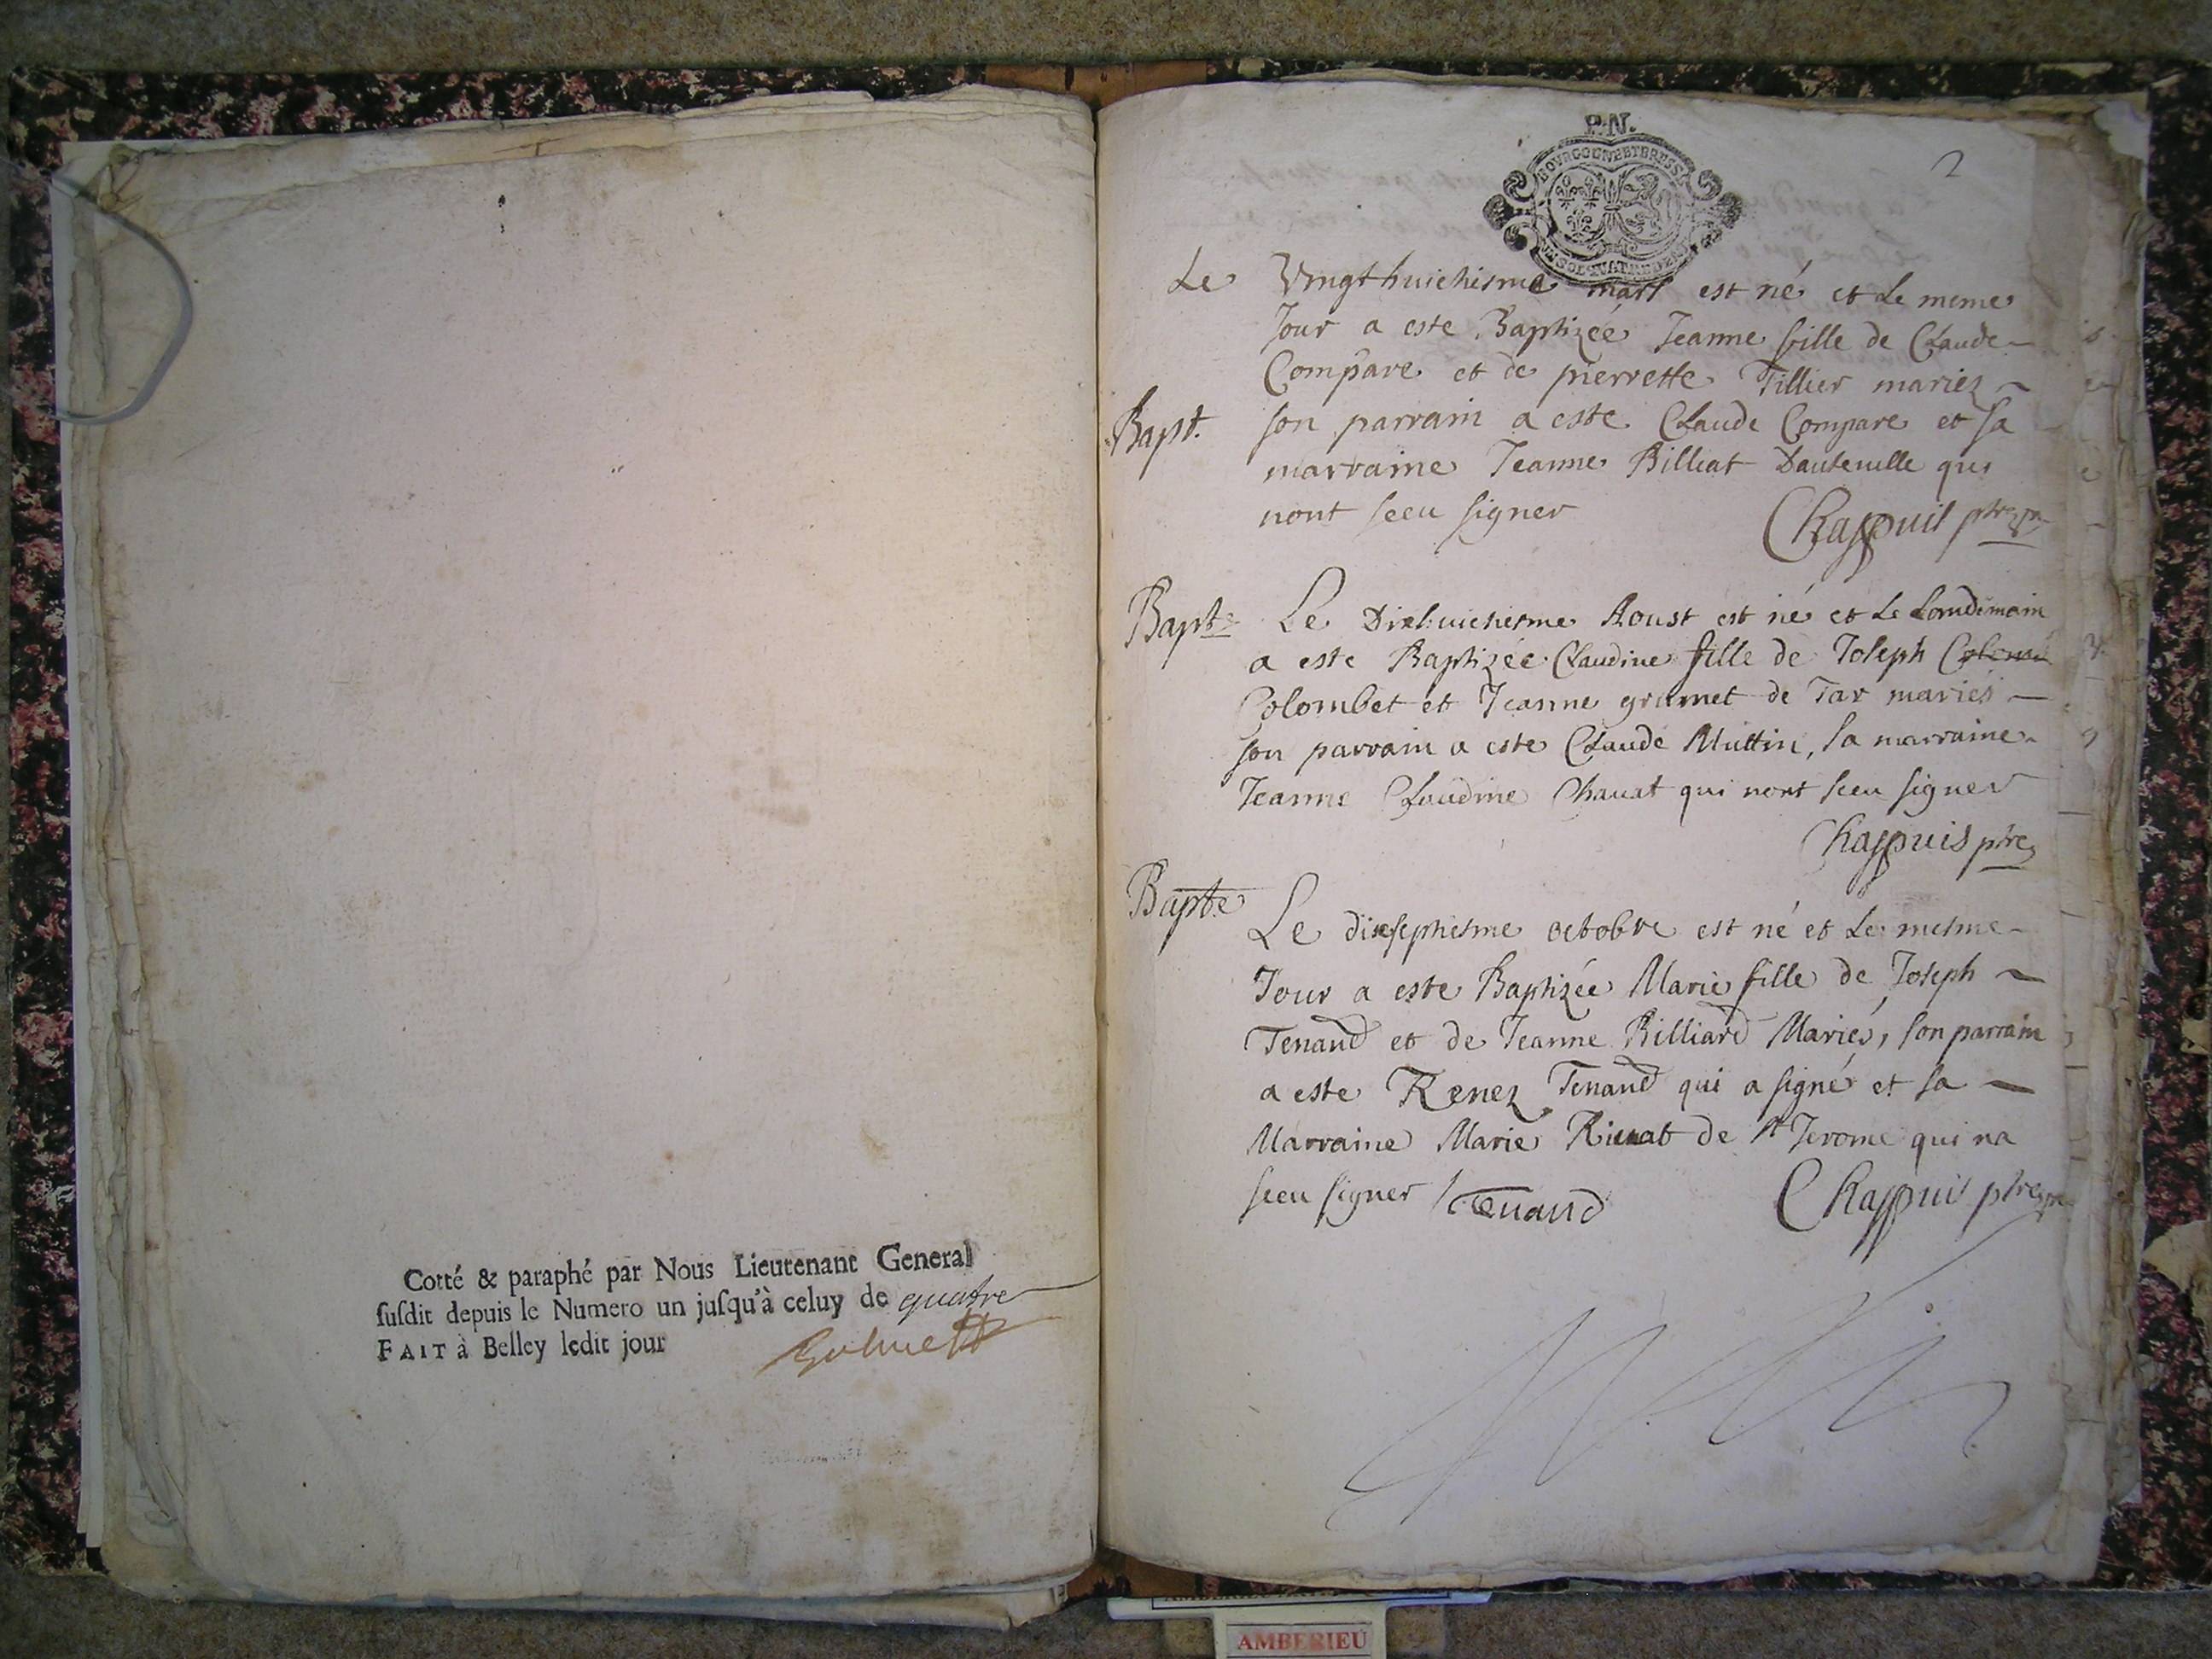 Cotté & paraphé par Nous Lieutenant General
susdit depuis le Numero un jusqu'à celuy de quatre
FAIT à Belley ledit jour
P.N.
BOURGOGNE ET BRESSE
2
Le Vingthuichisme mars est né et Le meme
Jour a este Baptizée Jeanne fille de Claude
Compare et de pierrette Tillier mariez
Bapt. son parrain a este Claude Compare et sa
marraine Jeanne Billiat Dauteville qui
nont sceu signer Chappuis ptre
Bapt. Le Dixhuichisme Aoust est né et Le Lomdemain
a este Baptizée Claudine fille de Joseph
Colombet et Jeanne grumet de Tar mariés
son parrain a este Claude Muttin, sa marraine
Jeanne Claudine Chavat qui nont sceu signer
Chappuis ptre
Bapte
Le dixseptiesme octobre est né et Le mesme
Jour a este Baptizée Marie fille de Joseph
Tenand et de Jeanne Billiard Mariés, son parrain
a este Renez Tenand qui a signé et sa
Marraine Marie de St Jerome qui na
sceu signer / Tenand Chappuis ptre
AMBERIEU